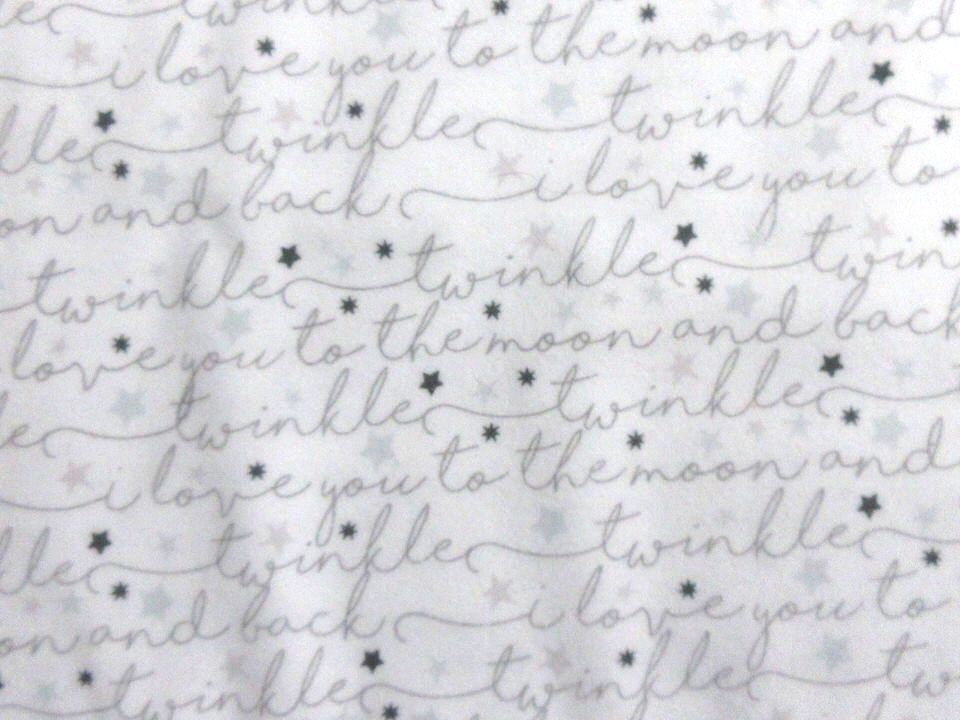 twinkle
i love you to the moon and
kle twinkle twinkle
on and back i love you to
twinkle twinkle twin
love you to the moon and back
le twinkle twinkle
i love you to the moon and
lle twinkle twinkle
on and back i love you to
twinkle twinkle tw